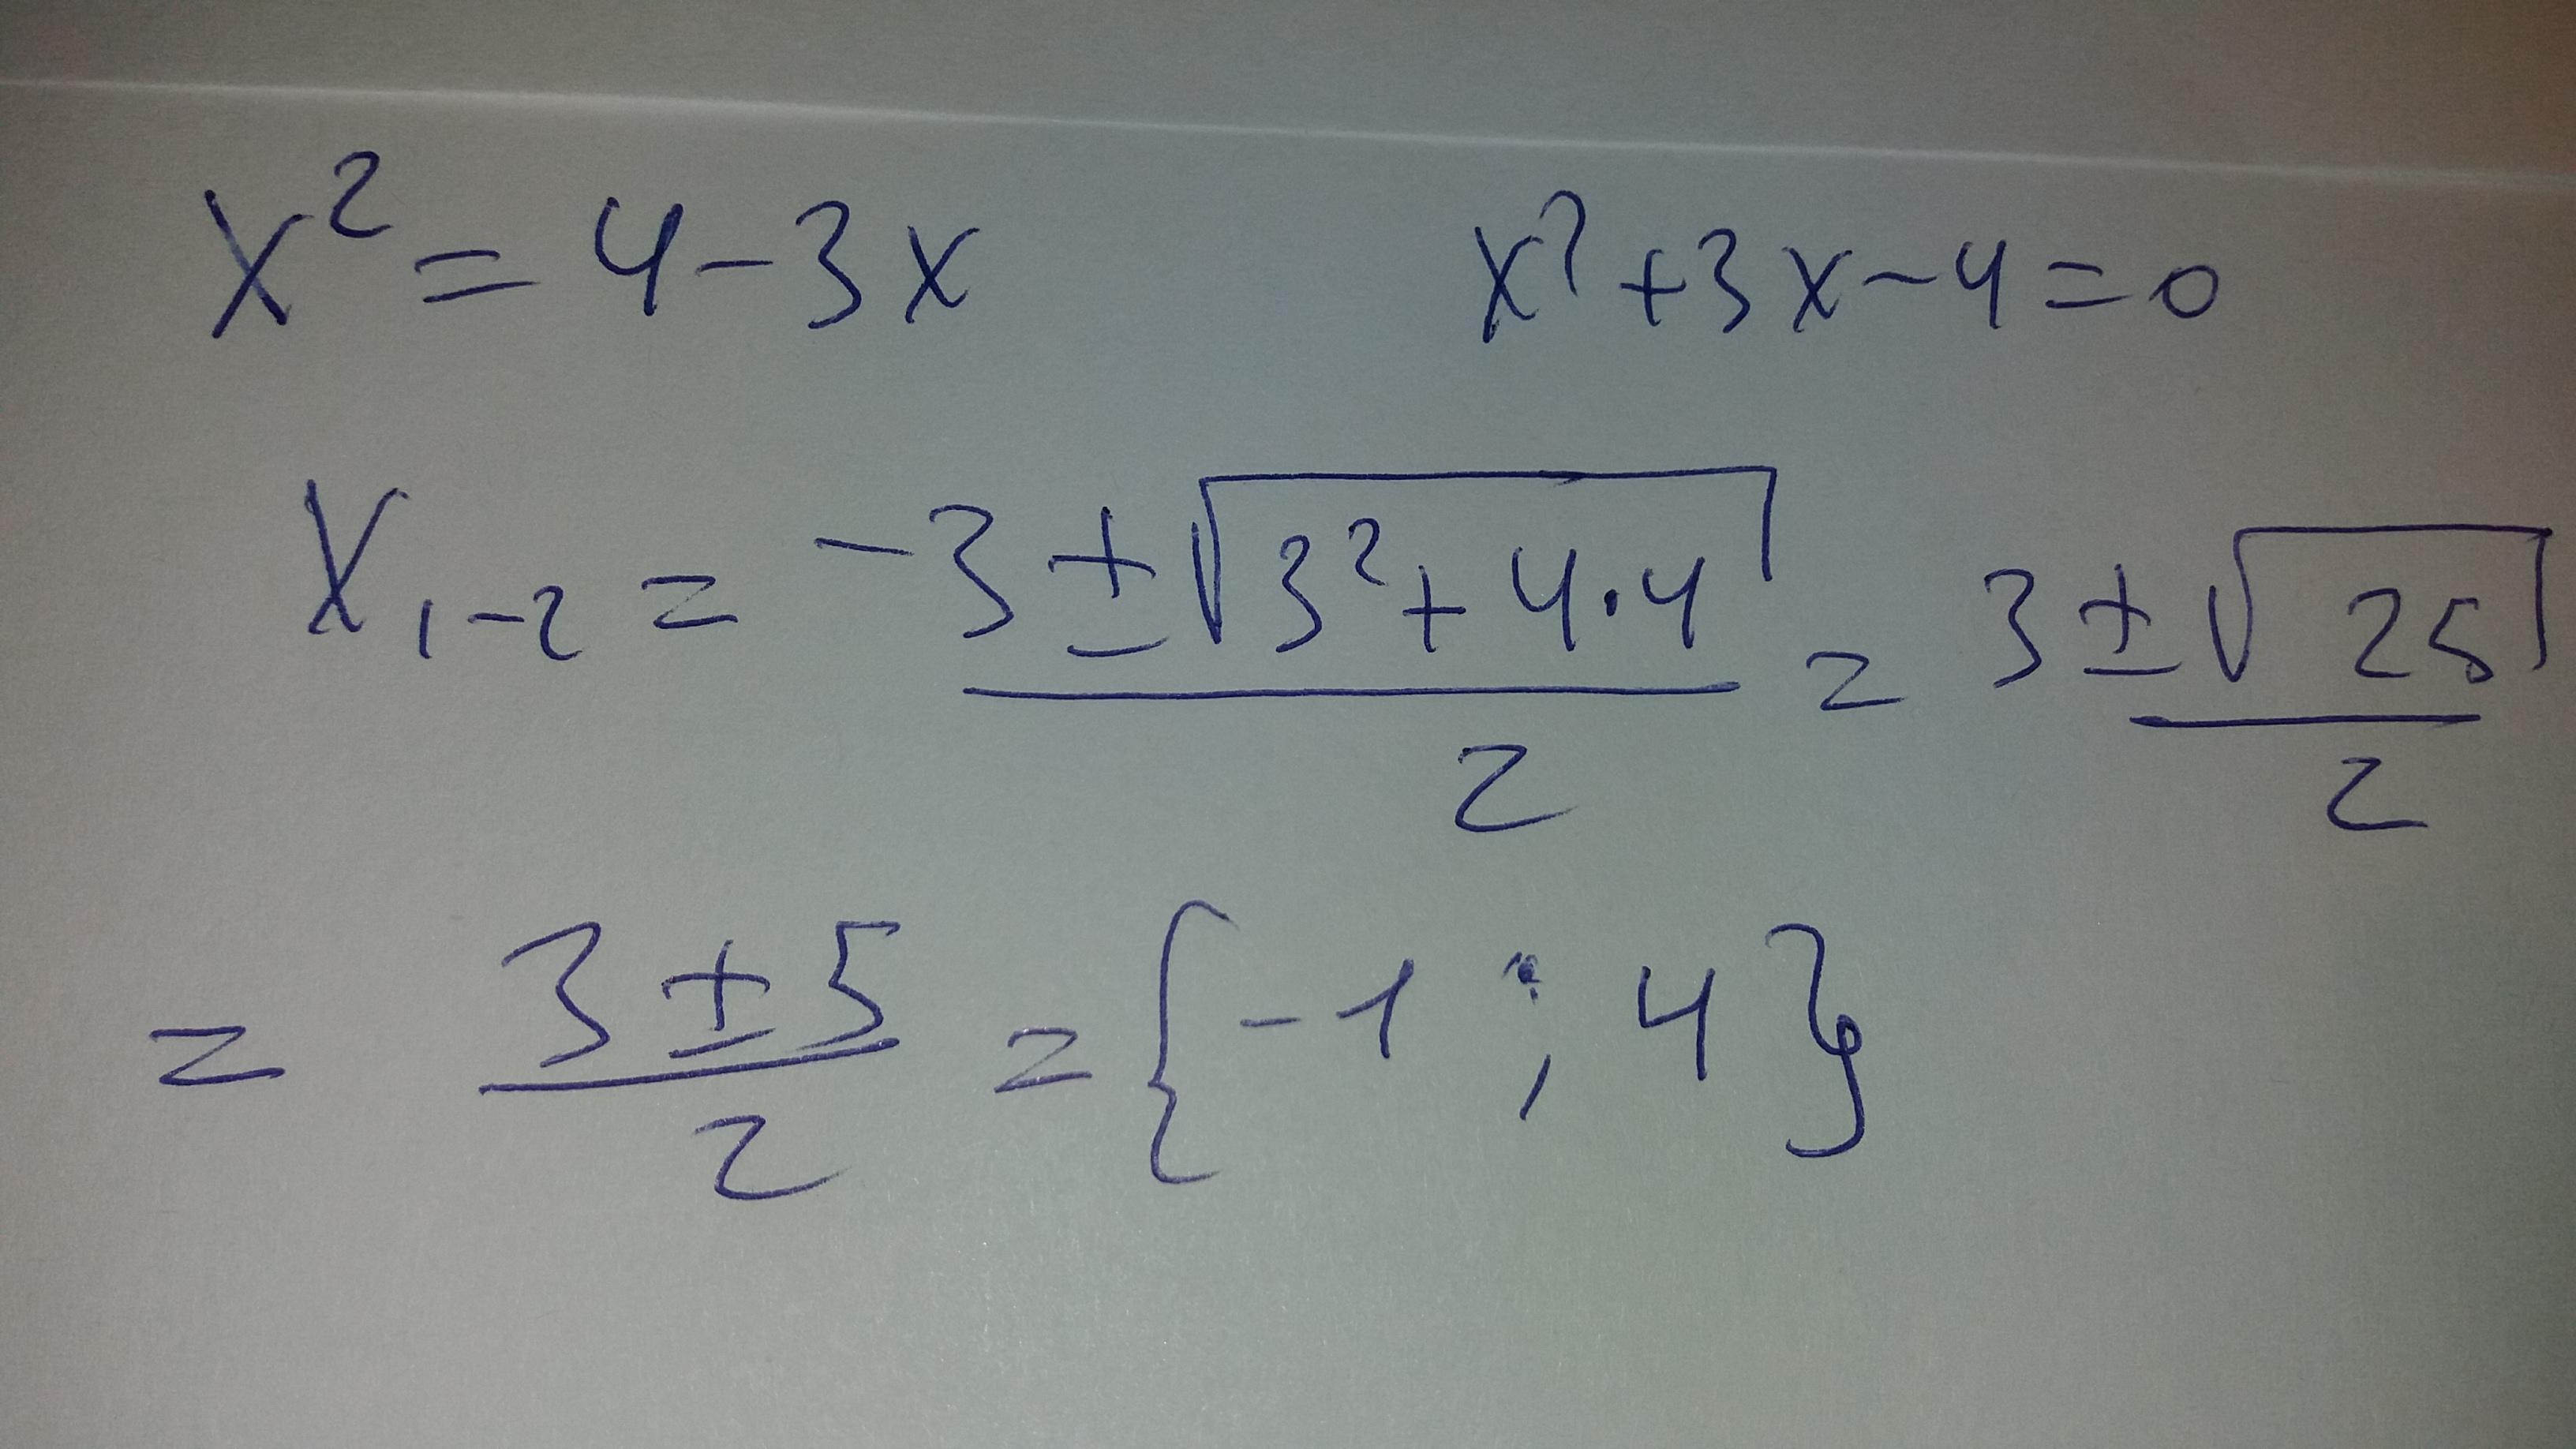 x² = 4 - 3x x² + 3x - 4 = 0
x₁₋₂ = -3 ± √(3² + 4·4) / 2 = 3 ± √25 / 2
= 3 ± 5 / 2 = {-1 ; 4}